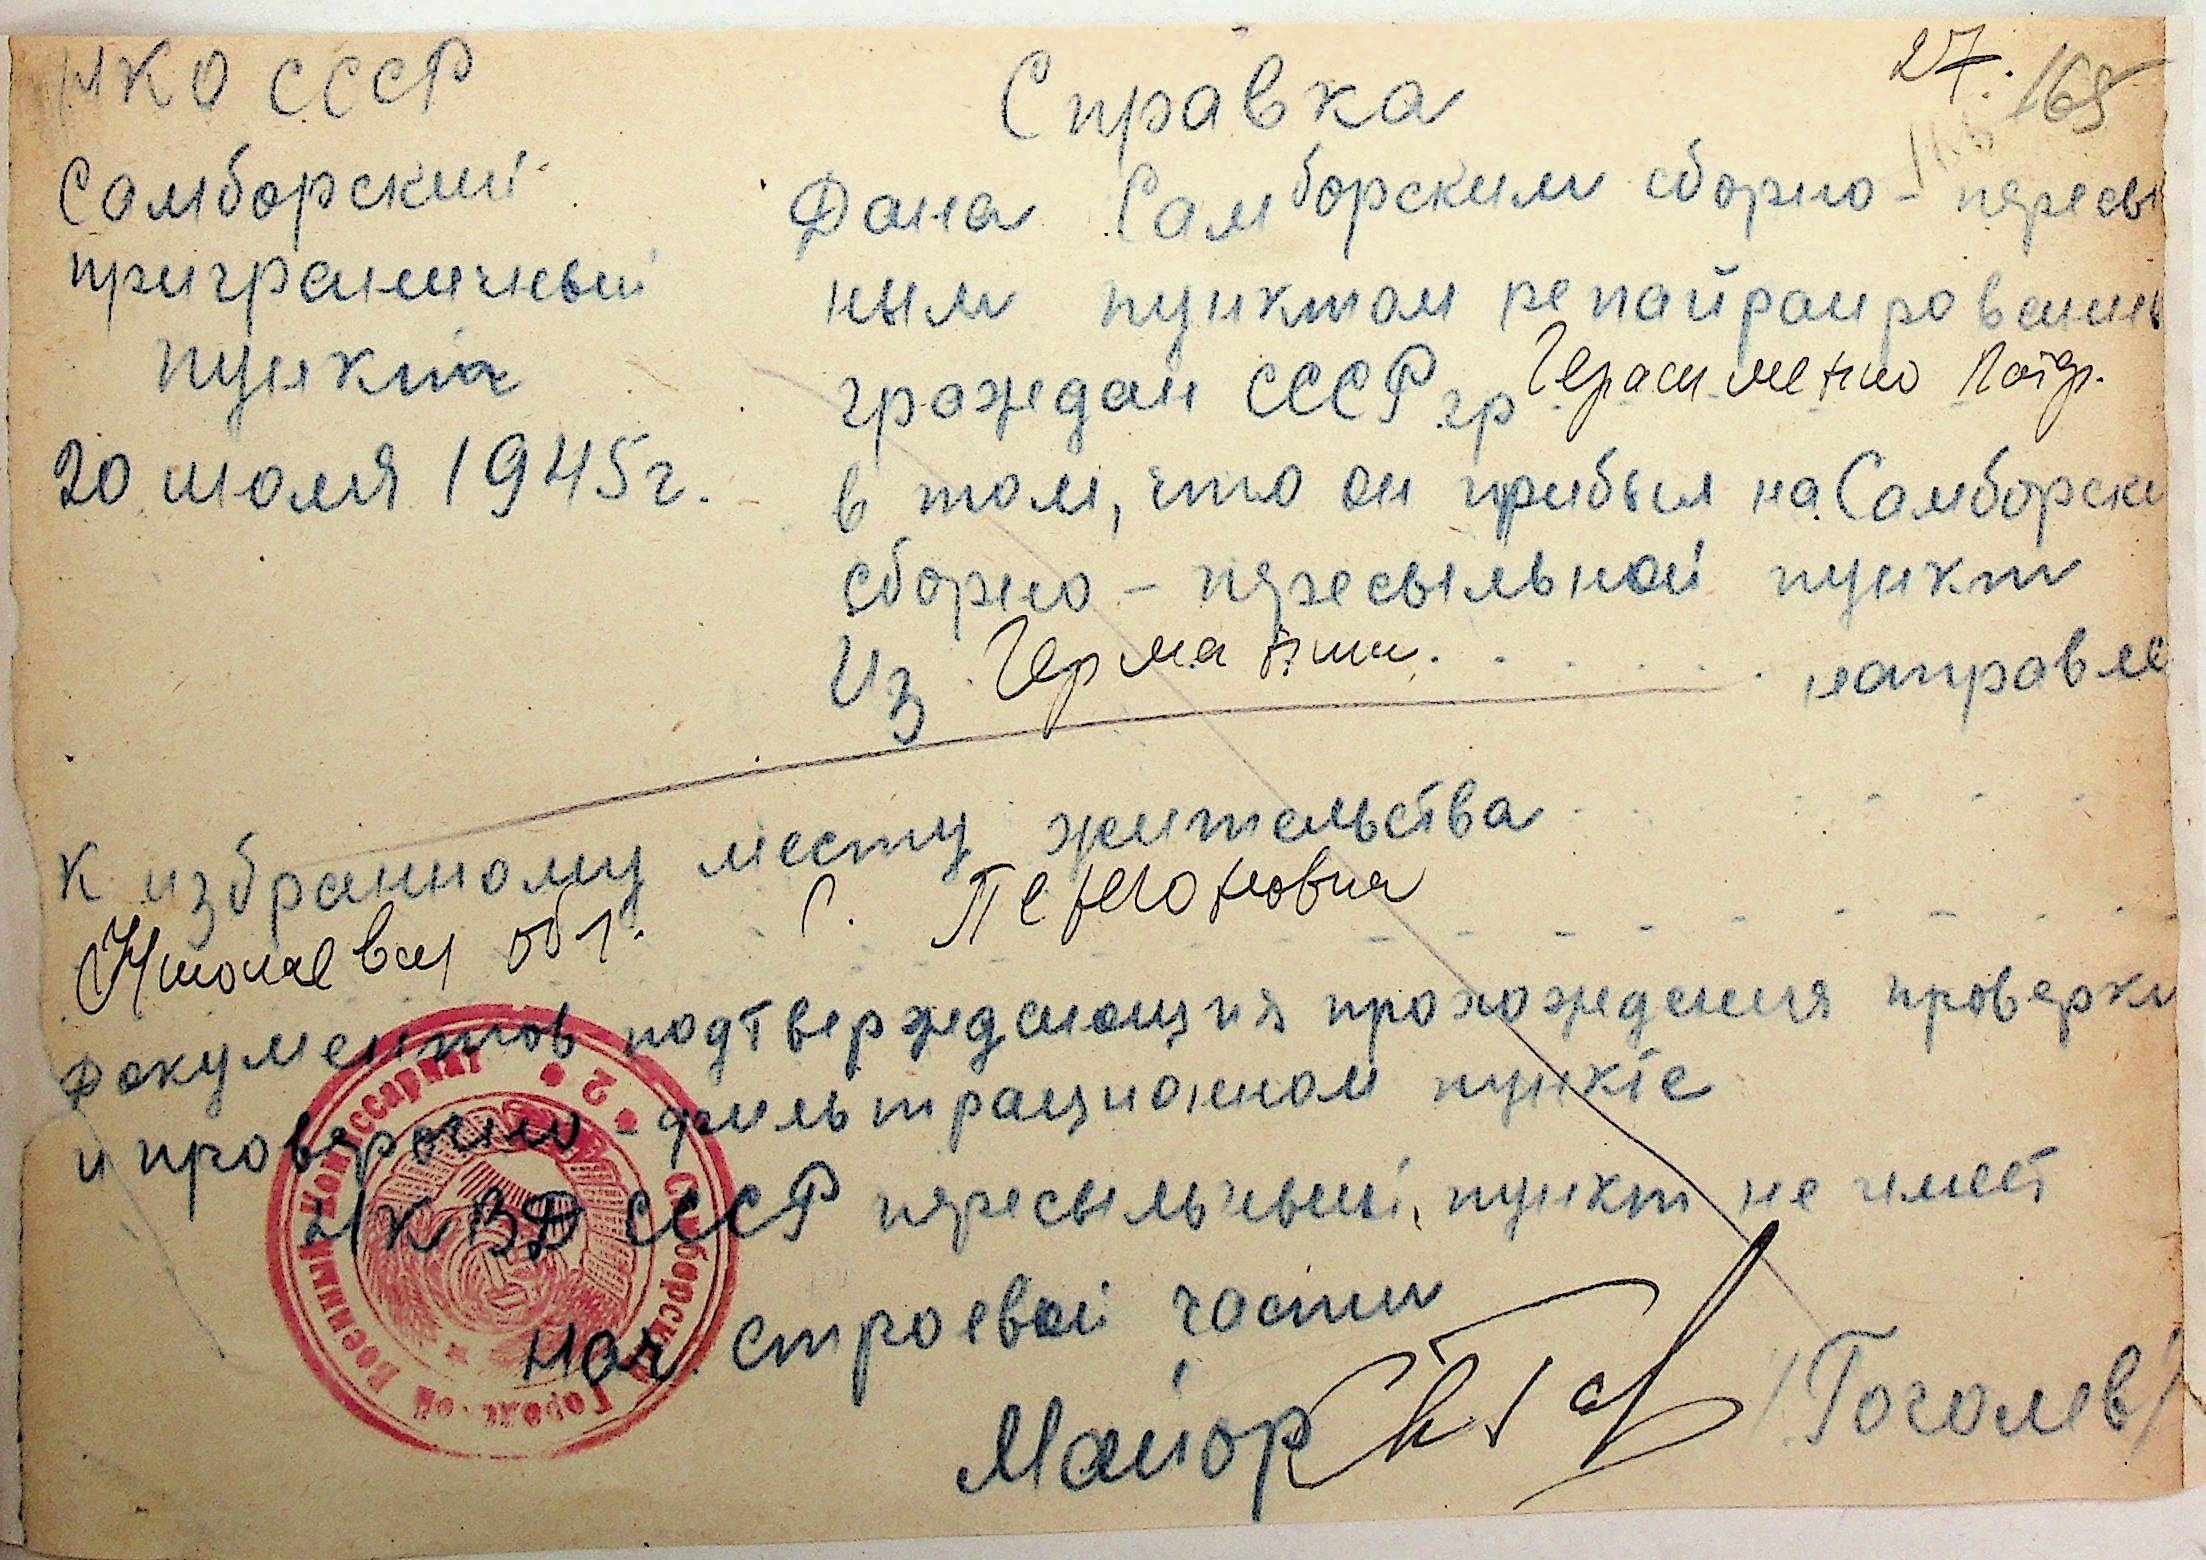 НКО СССР
Самборский
приграничный
пункта
20 июля 1945 г.
27.
165
Справка
Дана Самборским сборно-пересы
ным пунктом репатриированны
граждан СССР гр Герасименко
в том, что он прибыл на Самборски
сборно-пересыльной пункт
Из Германии направле
к избранному месту жительства
Николаевск обл. с.
документов подтверждающия прохождения проверки
и проверочно-фильтрационном пункте
НКВД СССР пересыльный пункт не имеет
Нач. строевой части
Майор /Гоголев/
Самборский Городской Военный Комиссариат 2